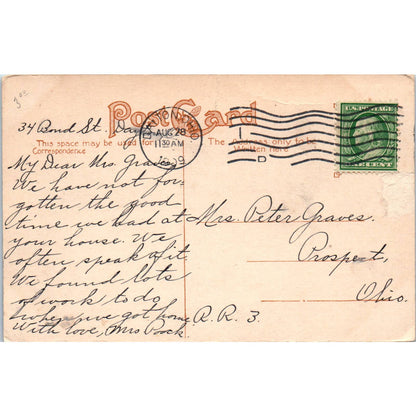 3.00
Post Card
34 Bond St. Day
DAYTON, OHIO
AUG 28
1130 AM
1909
U.S. POSTAGE
ONE CENT
This space may be used for
Correspondence
The address only to be
Written here
D
My Dear Mrs. Graves,
We have not for-
gotten the good
time we had at
your house. We
often speak of it
We found lots
of work to do
when we got home.
With love, Mrs
Mrs. Peter Graves.
Prospect,
Ohio.
R. R. 3.